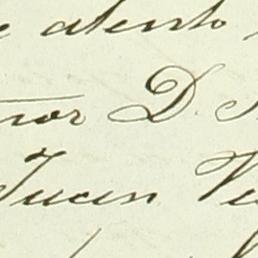 e atento
nor D.
Tucen Ve